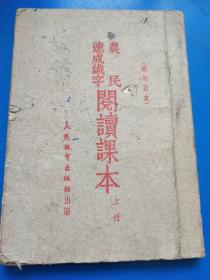 農民
速成識字
閱讀課本
上册
人民教育出版社出版